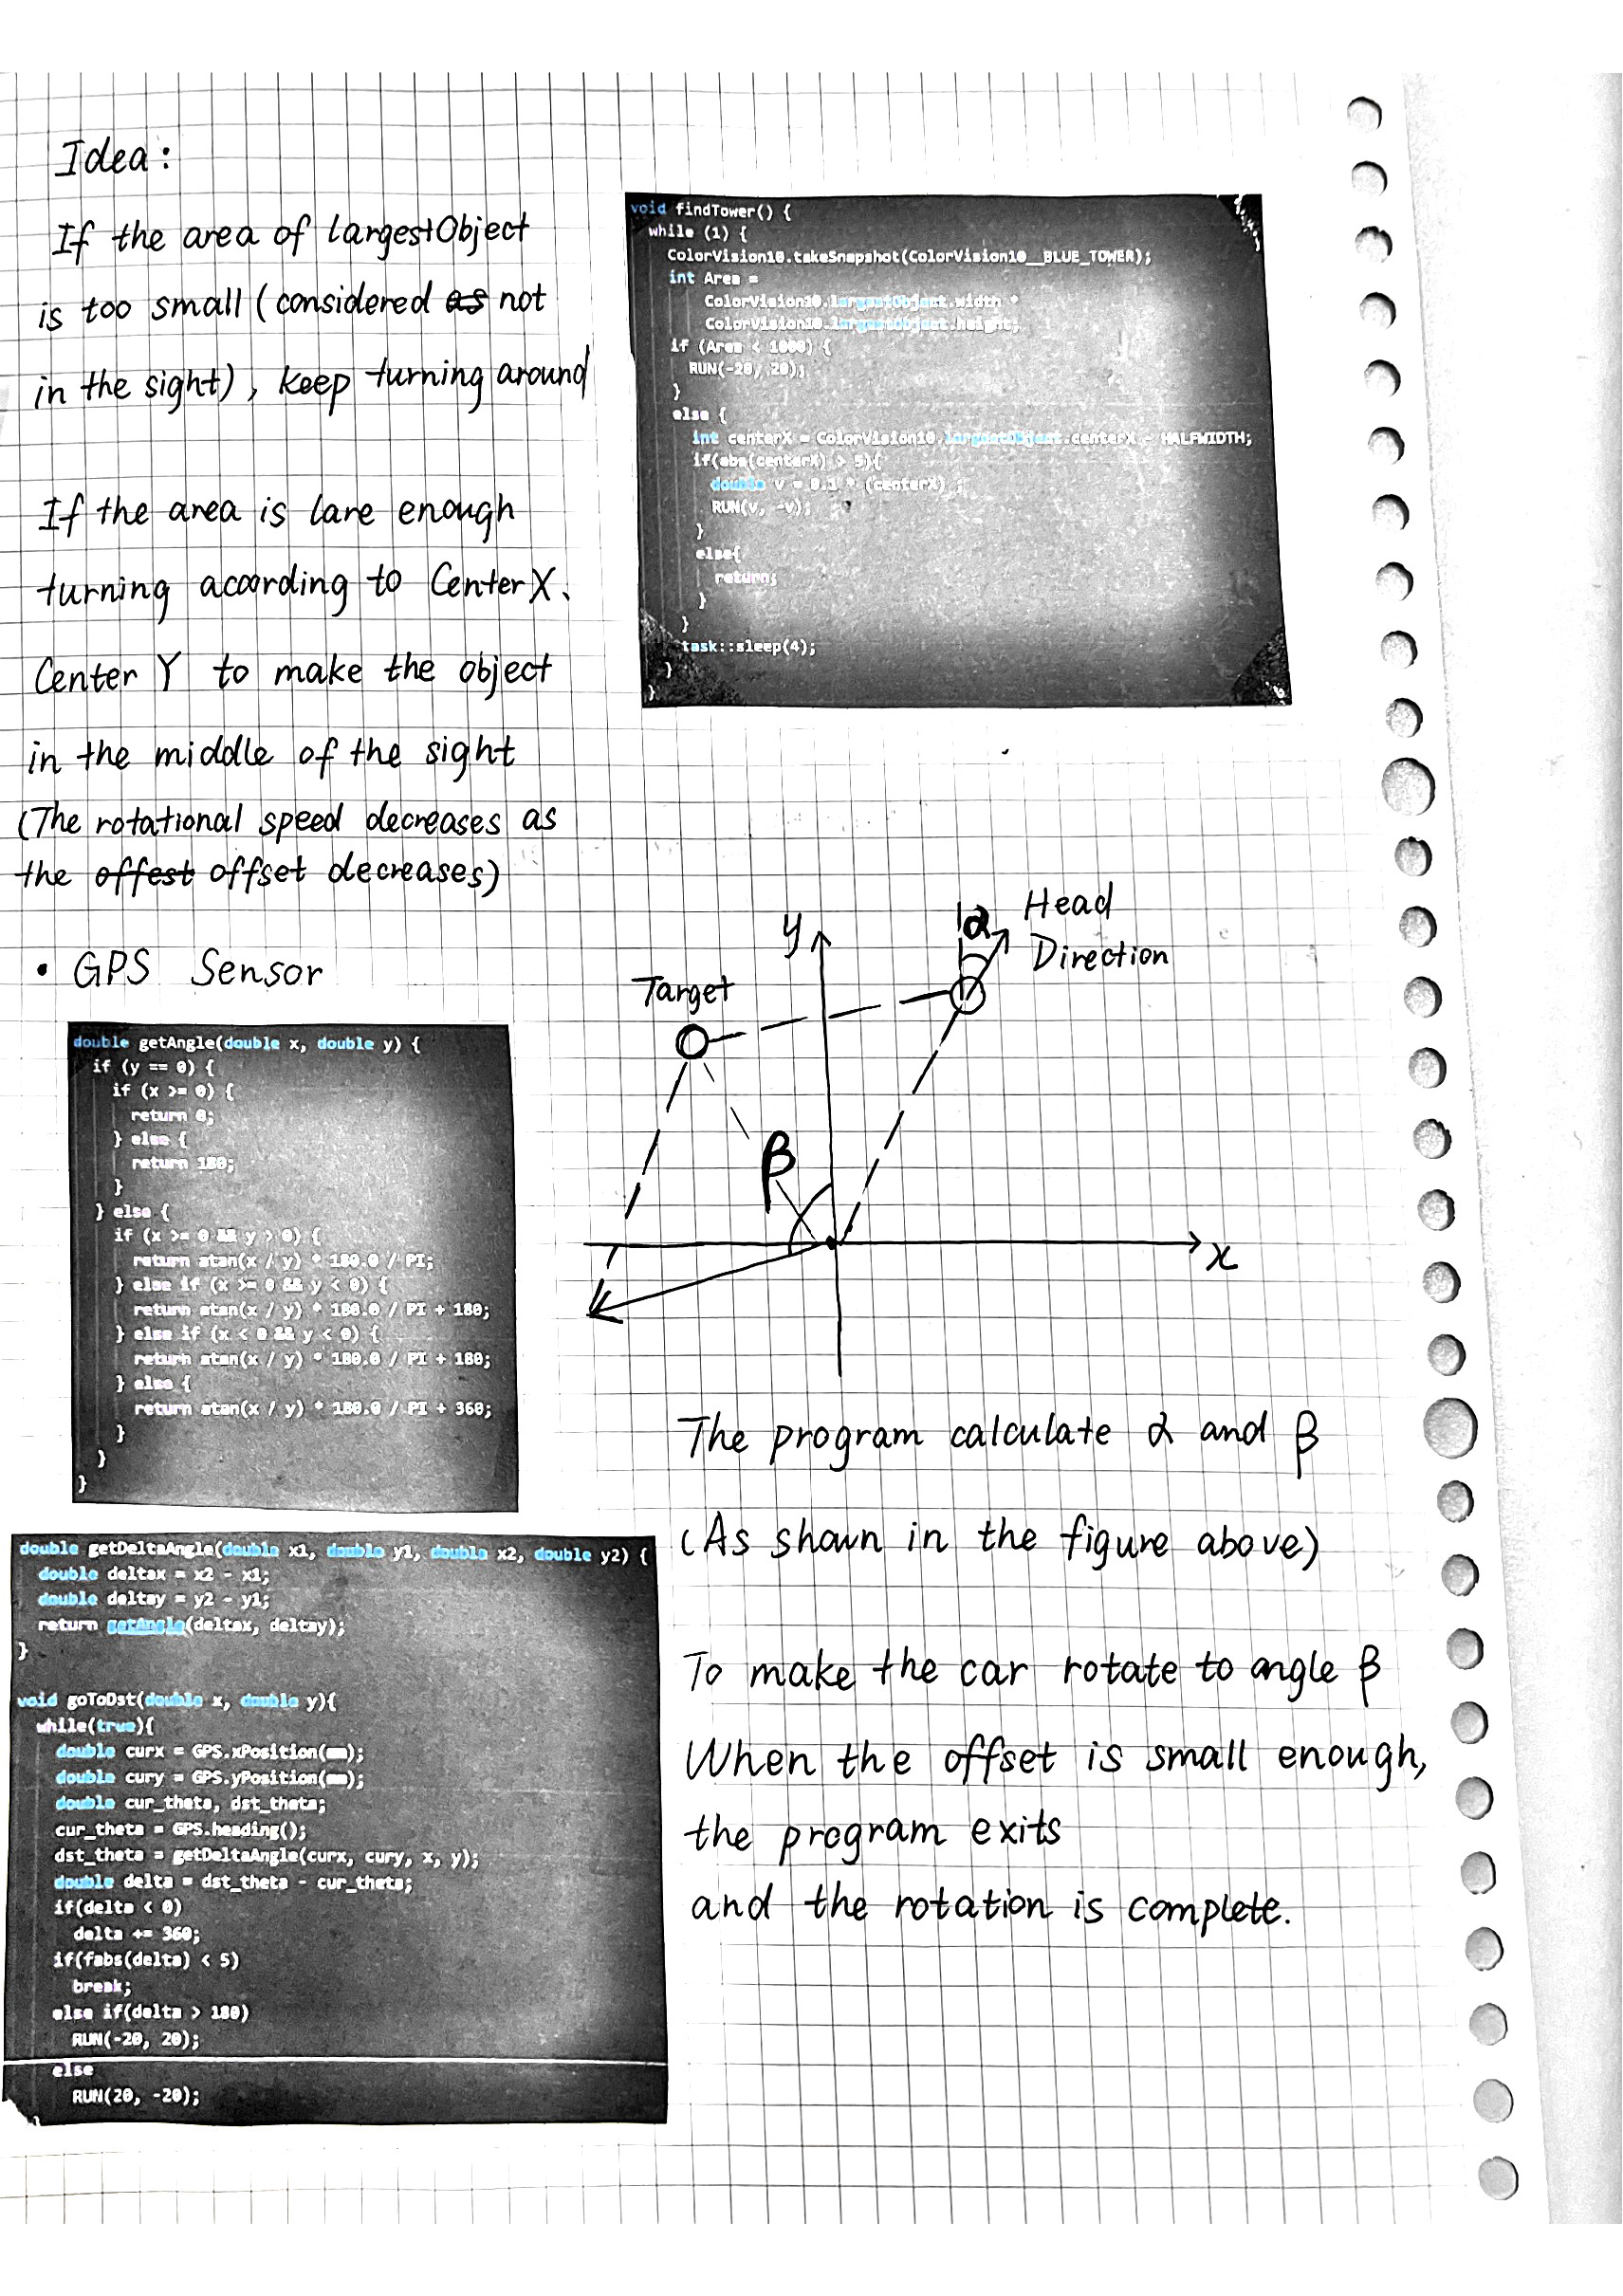 Idea:
If the area of largestObject
is too small (considered as not
in the sight), keep turning around
If the area is lare enough
turning acording to CenterX、
Center Y to make the object
in the middle of the sight
(The rotational speed decreases as
the offest offset decreases)
void findTower() {
while (1) {
ColorVision10.takeSnapshot(ColorVision10__BLUE_TOWER);
int Area =
ColorVision10.largestObject.width *
ColorVision10.largestObject.height;
if (Area < 1000) {
RUN(-20, 20);
}
else {
int centerX = ColorVision10.largestObject.centerX - HALFWIDTH;
if(abs(centerX) > 5){
double v = 0.1 * (centerX) ;
RUN(v, -v);
}
else{
return;
}
}
task::sleep(4);
}
}
• GPS Sensor
double getAngle(double x, double y) {
if (y == 0) {
if (x >= 0) {
return 0;
} else {
return 180;
}
} else {
if (x >= 0 && y > 0) {
return atan(x / y) * 180.0 / PI;
} else if (x >= 0 && y < 0) {
return atan(x / y) * 180.0 / PI + 180;
} else if (x < 0 && y < 0) {
return atan(x / y) * 180.0 / PI + 180;
} else {
return atan(x / y) * 180.0 / PI + 360;
}
}
}
y
α
Head
Direction
Target
β
x
The program calculate α and β
(As shown in the figure above)
To make the car rotate to angle β
When the offset is small enough,
the program exits
and the rotation is complete.
double getDeltaAngle(double x1, double y1, double x2, double y2) {
double deltax = x2 - x1;
double deltay = y2 - y1;
return getAngle(deltax, deltay);
}
void goToDst(double x, double y){
while(true){
double curx = GPS.xPosition(mm);
double cury = GPS.yPosition(mm);
double cur_theta, dst_theta;
cur_theta = GPS.heading();
dst_theta = getDeltaAngle(curx, cury, x, y);
double delta = dst_theta - cur_theta;
if(delta < 0)
delta += 360;
if(fabs(delta) < 5)
break;
else if(delta > 180)
RUN(-20, 20);
else
RUN(20, -20);
}